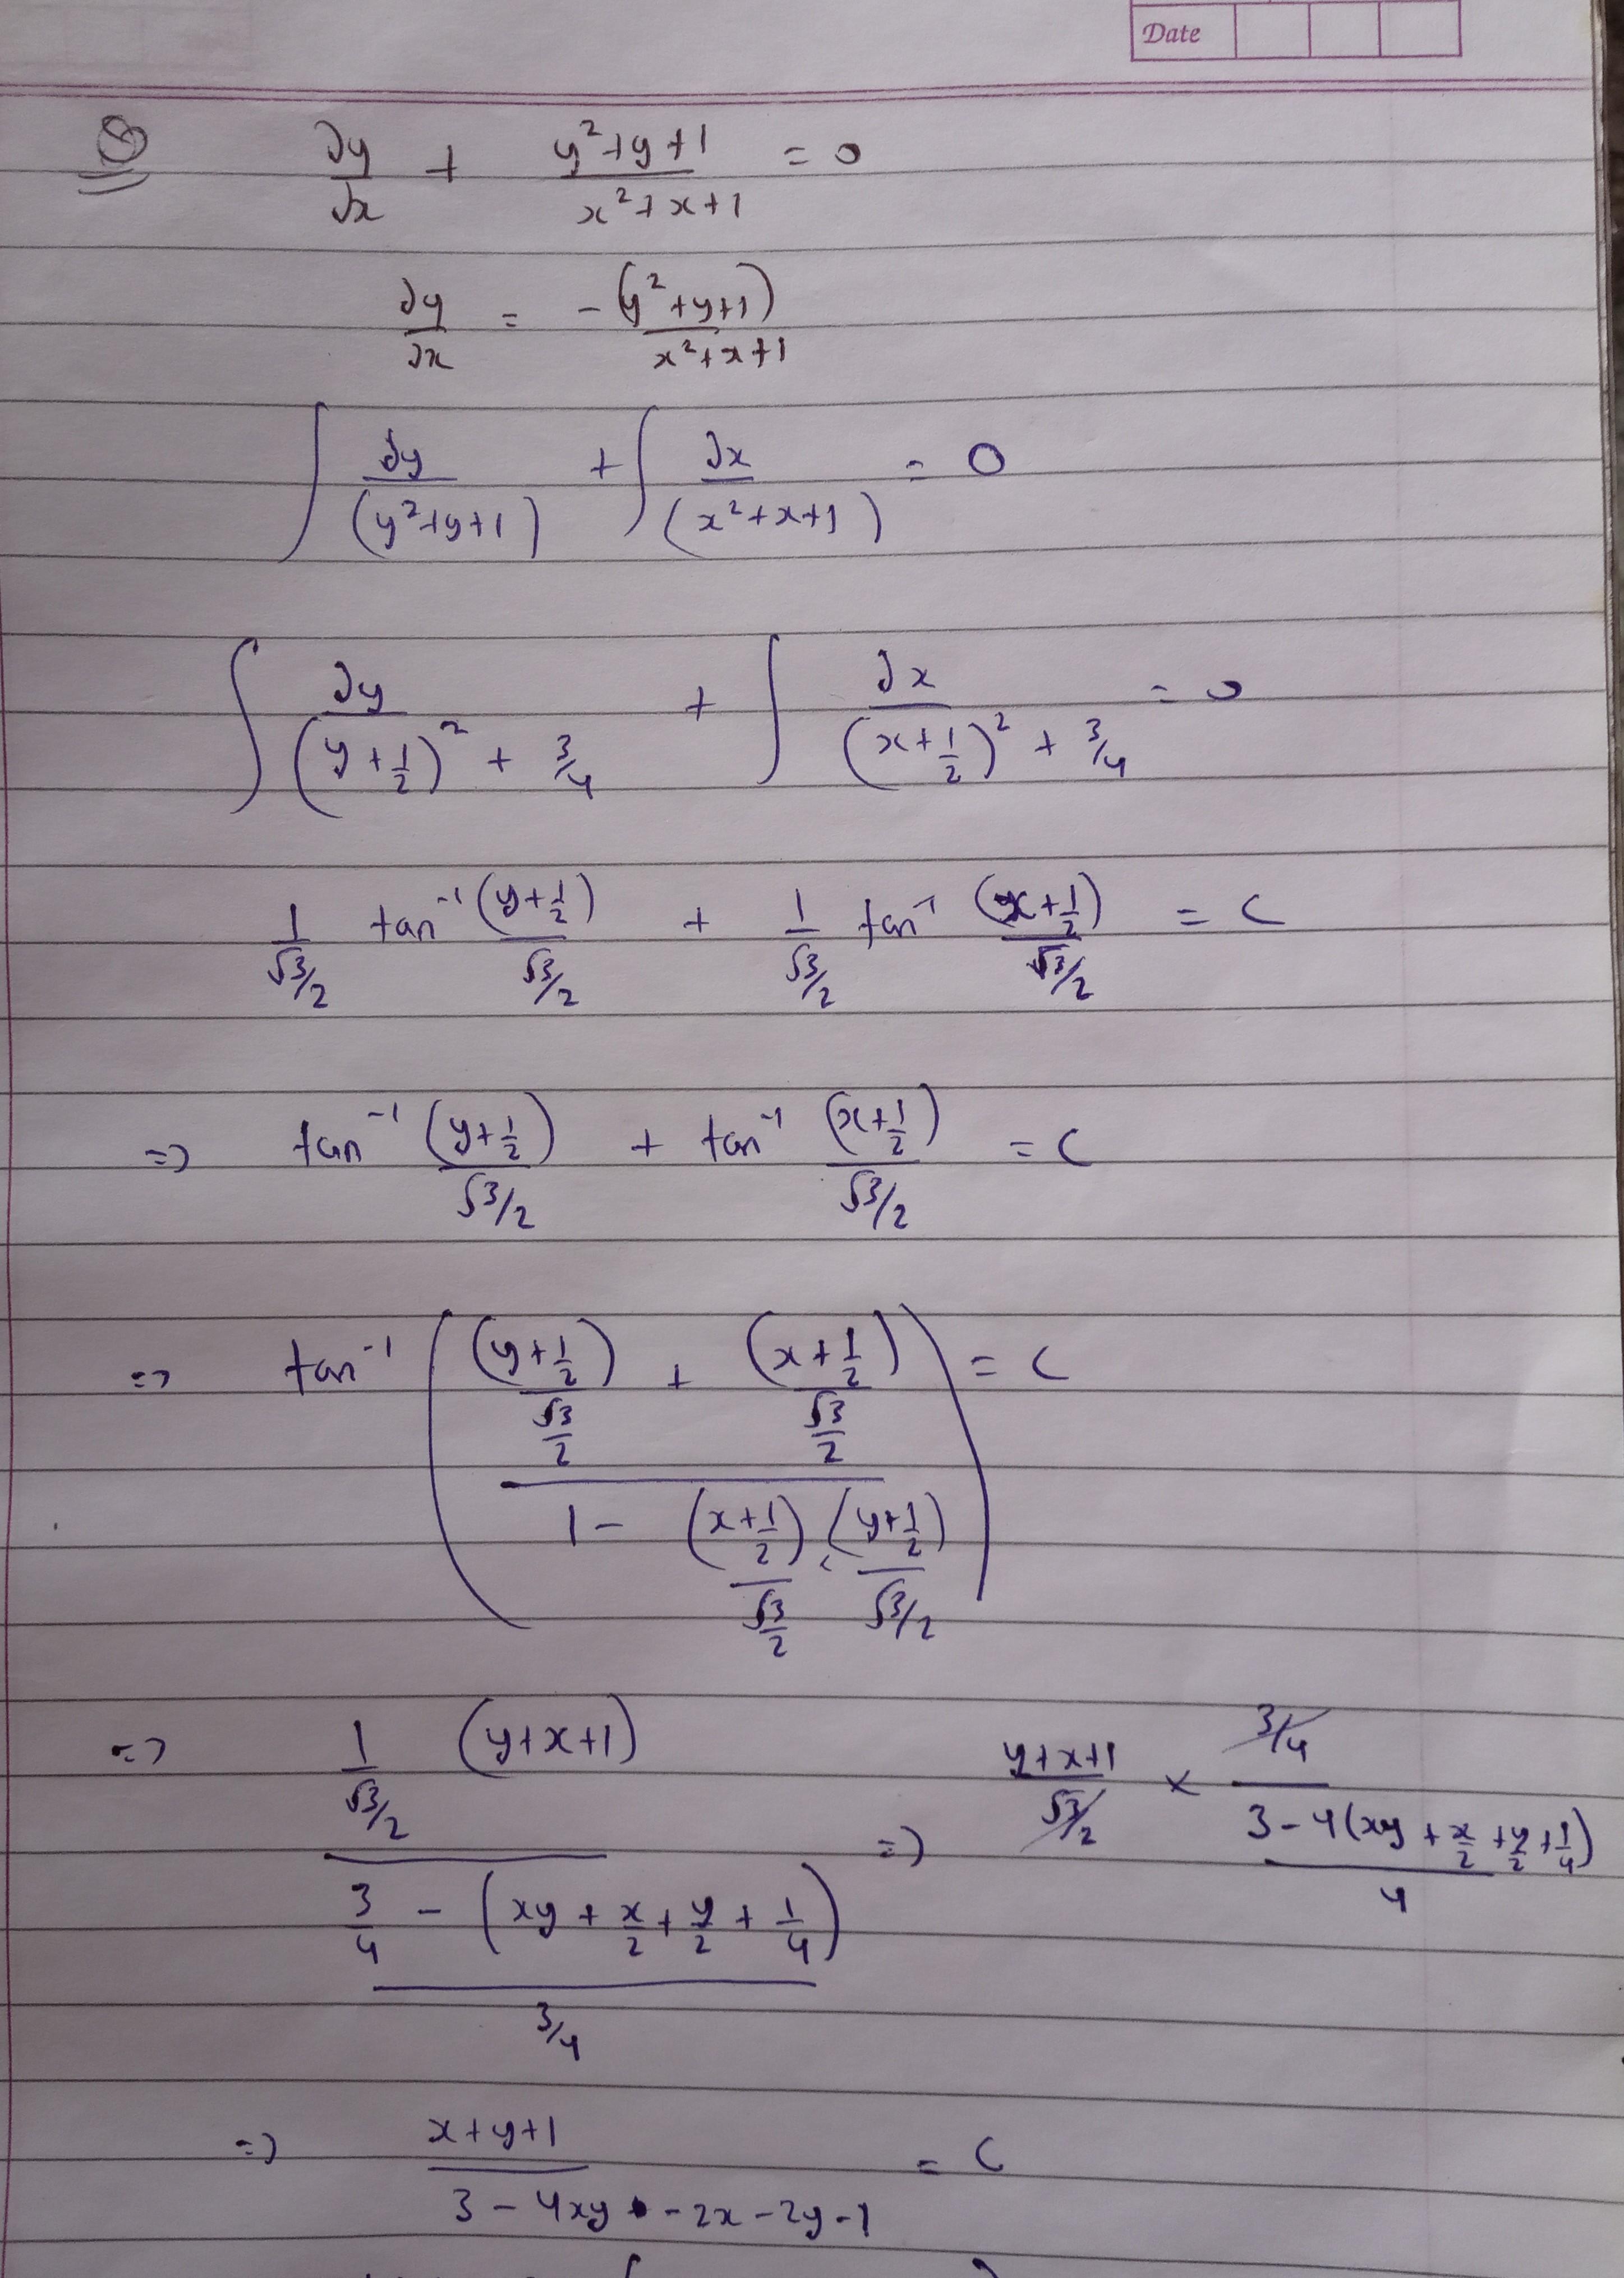 Date
Q dy/dx + (y²+y+1)/(x²+x+1) = 0
dy/dx = -(y²+y+1)/(x²+x+1)
∫ dy/(y²+y+1) + ∫ dx/(x²+x+1) = 0
∫ dy/((y+1/2)² + 3/4) + ∫ dx/((x+1/2)² + 3/4) = 0
1/(√3/2) tan⁻¹ (y+1/2)/(√3/2) + 1/(√3/2) tan⁻¹ (x+1/2)/(√3/2) = C
=> tan⁻¹ (y+1/2)/(√3/2) + tan⁻¹ (x+1/2)/(√3/2) = C
=> tan⁻¹ ( ((y+1/2)/(√3/2) + (x+1/2)/(√3/2)) / (1 - (x+1/2)/(√3/2) . (y+1/2)/(√3/2)) ) = C
=> (1/(√3/2) (y+x+1)) / ((3/4 - (xy + x/2 + y/2 + 1/4)) / (3/4)) => (y+x+1)/(√3/2) × (3/4) / ((3-4(xy + x/2 + y/2 + 1/4))/4)
=> (x+y+1)/(3-4xy-2x-2y-1) = C